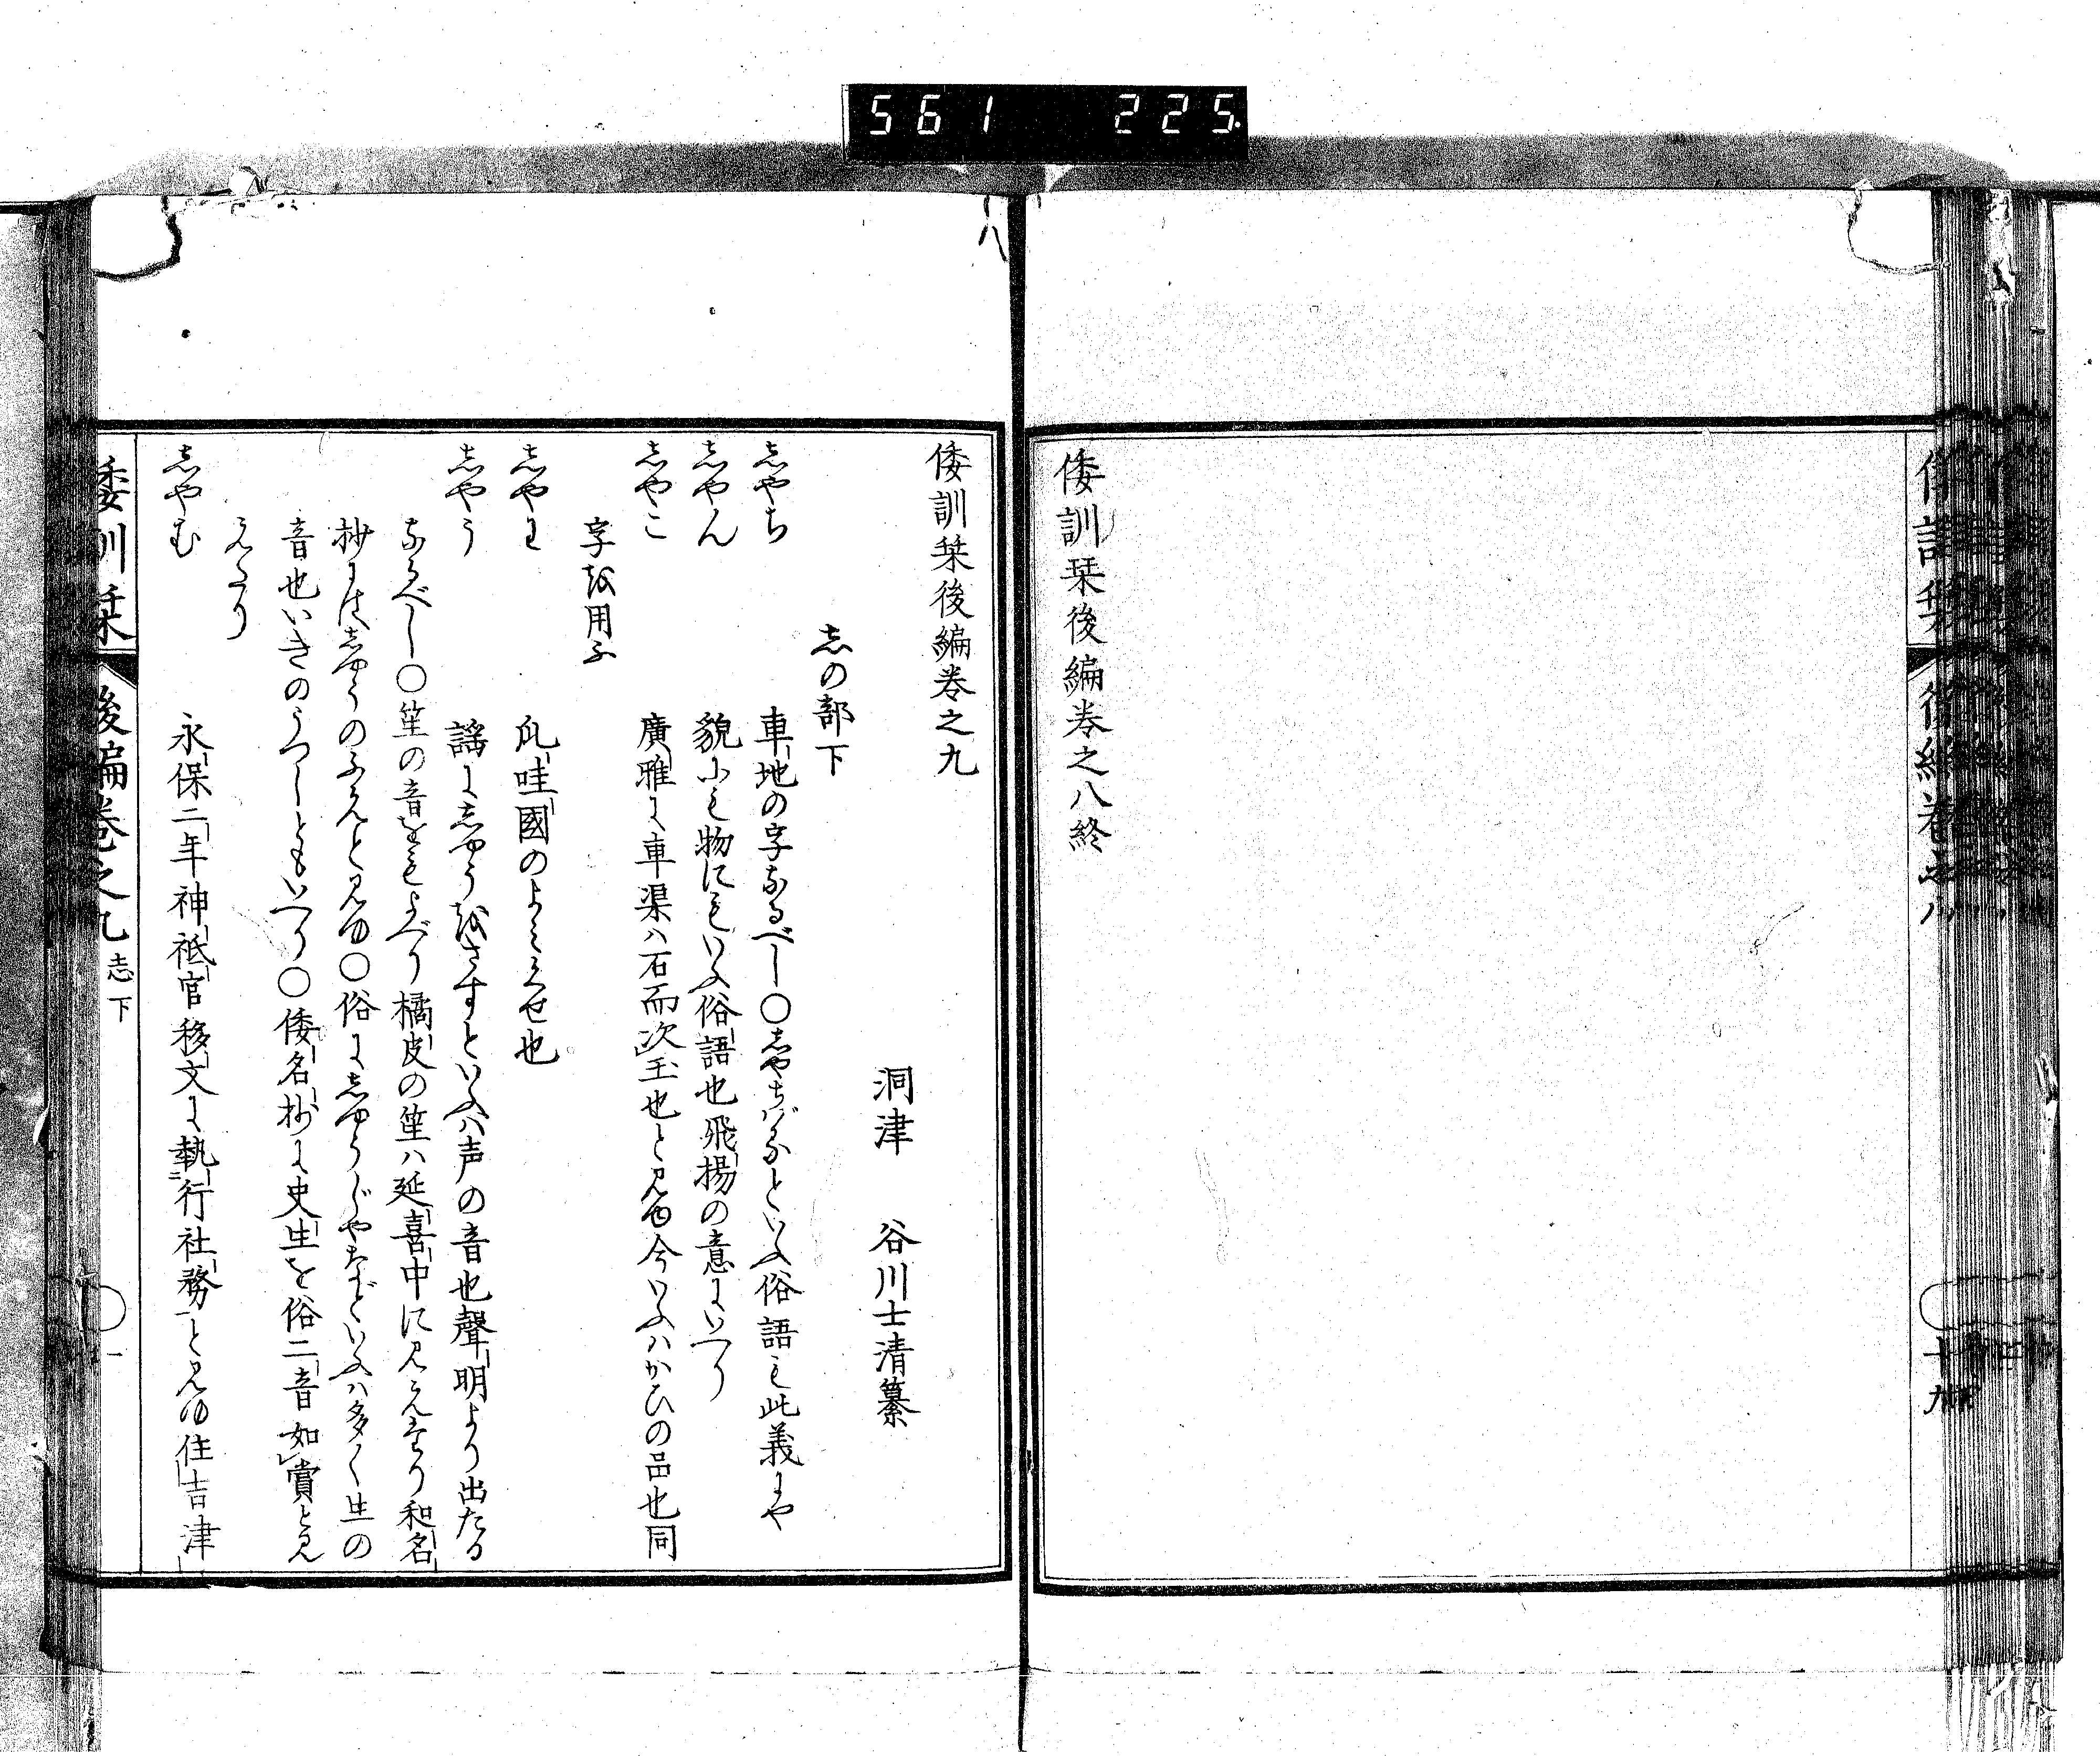 561 225
倭訓栞後編巻之八終
倭訓栞後編巻之九
洞津 谷川士清纂
志の部下
志やち 車地の字なるべし〇志やちばなといふ俗語も此義にや
志やん 貌にも物にもいふ俗語也飛揚の意にいへり
志やこ 廣雅に車渠ハ石而次玉也と見ゆ今いふハかひの品也同
字を用ふ
志やわ 爪哇國のよみくせ也
志やう 謡に志やうをさすといふハ声の音也聲明より出たる
なるべし〇笙の音をもよべり橘皮の笙ハ延喜中に見えたり和名
抄にハ志やうのふえと見ゆ〇俗に志やうじやなどいふハ多く生の
音也いきのうつしともいへり〇倭名抄に史生を俗二音如賞と見
えたり
志やむ 永保二年神祇官移文に執行社務と見ゆ住吉津
倭訓栞 後編巻之九 志下 一